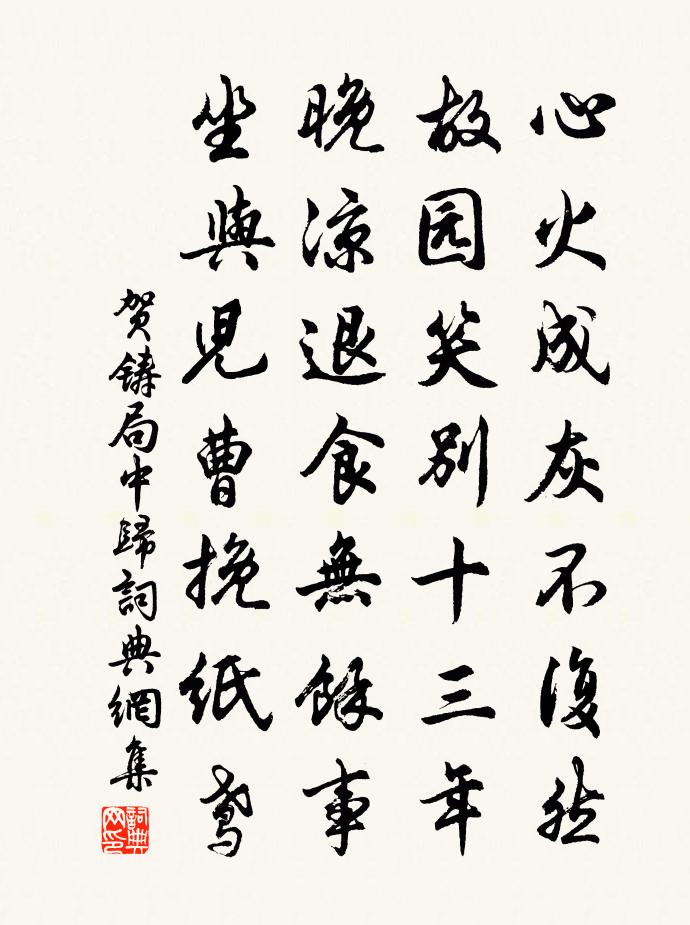 心火成灰不復然
故园笑别十三年
晚涼退食無餘事
坐與児曹挽纸鸢
贺鑄局中歸詞典網集
詞典網印